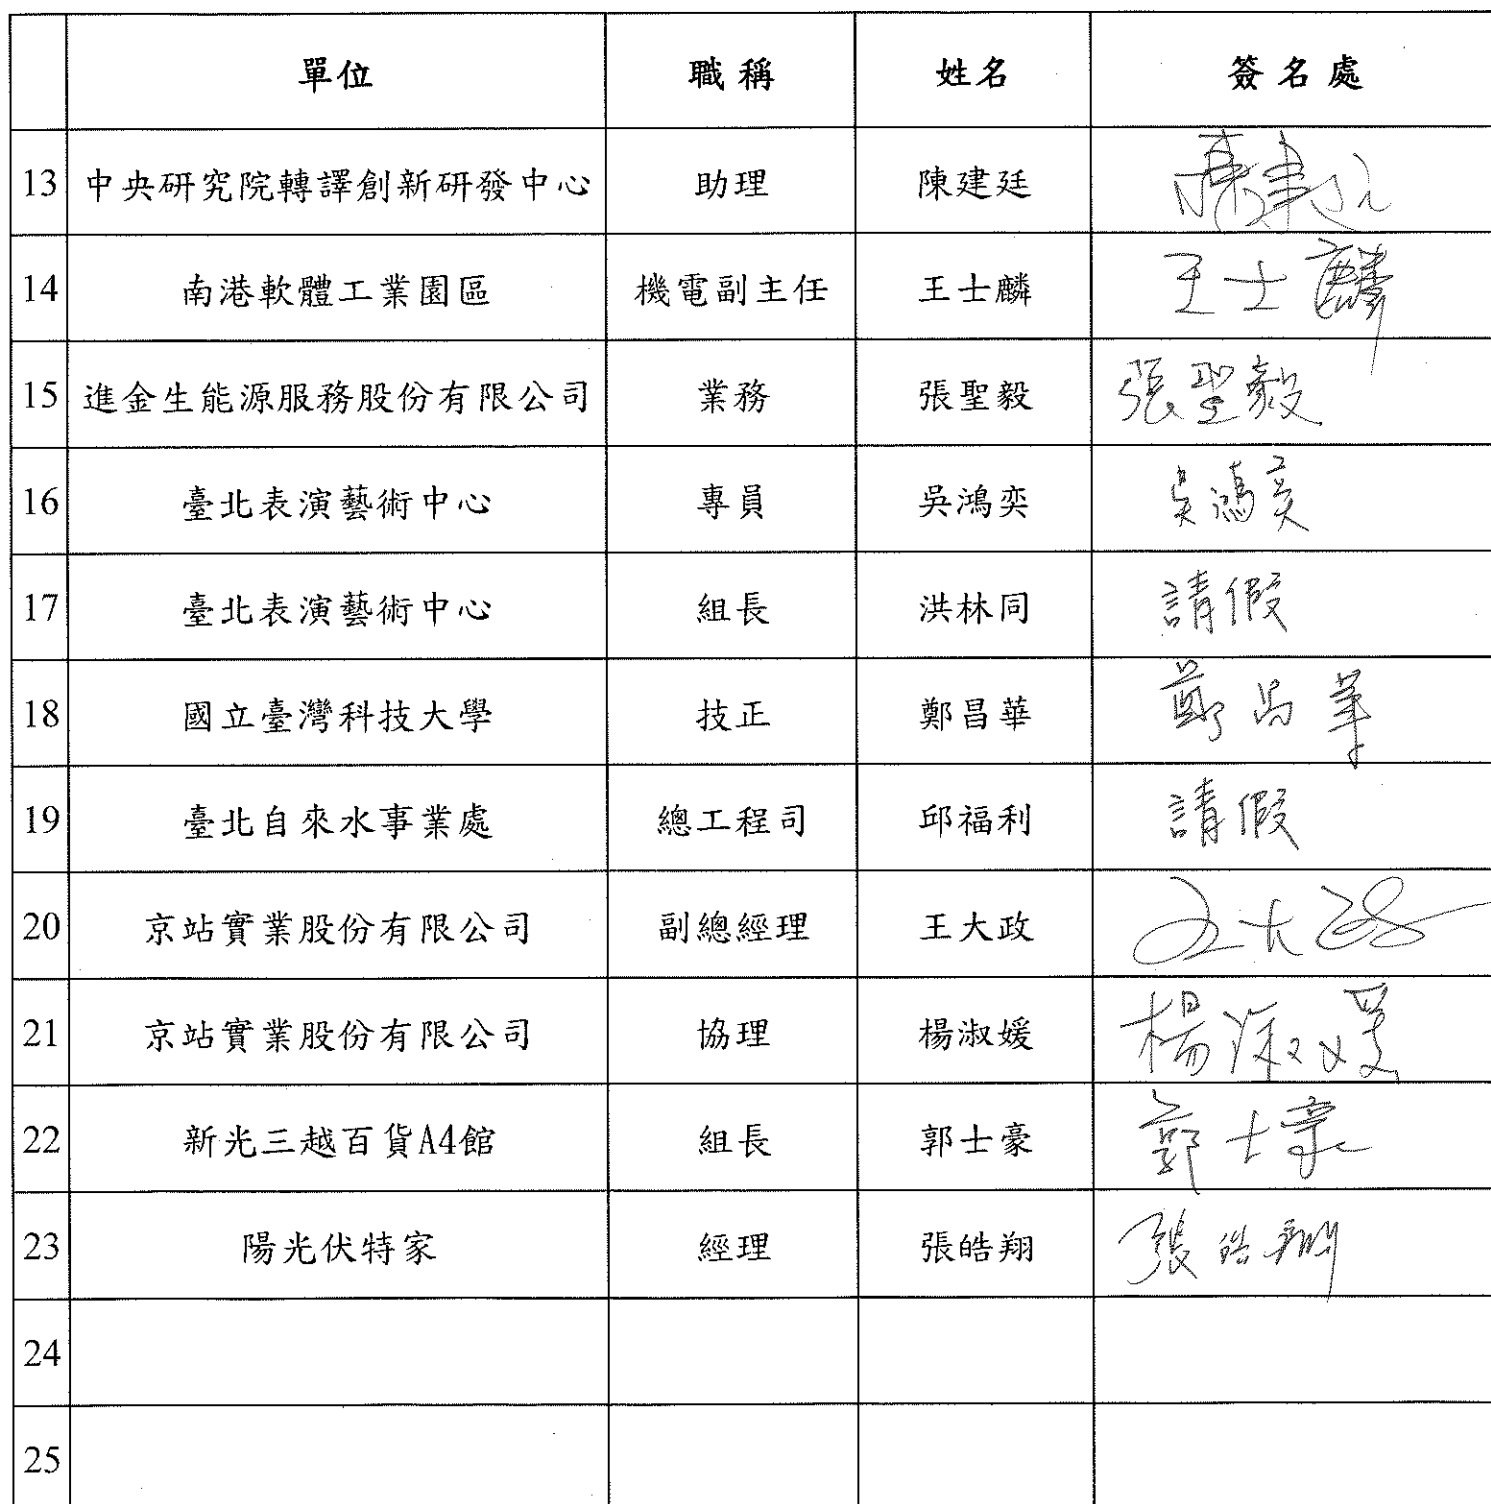 單位 職稱 姓名 簽名處
13 中央研究院轉譯創新研發中心 助理 陳建廷 陳建廷
14 南港軟體工業園區 機電副主任 王士麟 王士麟
15 進金生能源服務股份有限公司 業務 張聖毅 張聖毅
16 臺北表演藝術中心 專員 吳鴻奕 吳鴻奕
17 臺北表演藝術中心 組長 洪林同 請假
18 國立臺灣科技大學 技正 鄭昌華 鄭昌華
19 臺北自來水事業處 總工程司 邱福利 請假
20 京站實業股份有限公司 副總經理 王大政 王大政
21 京站實業股份有限公司 協理 楊淑媛 楊淑媛
22 新光三越百貨A4館 組長 郭士豪 郭士豪
23 陽光伏特家 經理 張皓翔 張皓翔
24
25